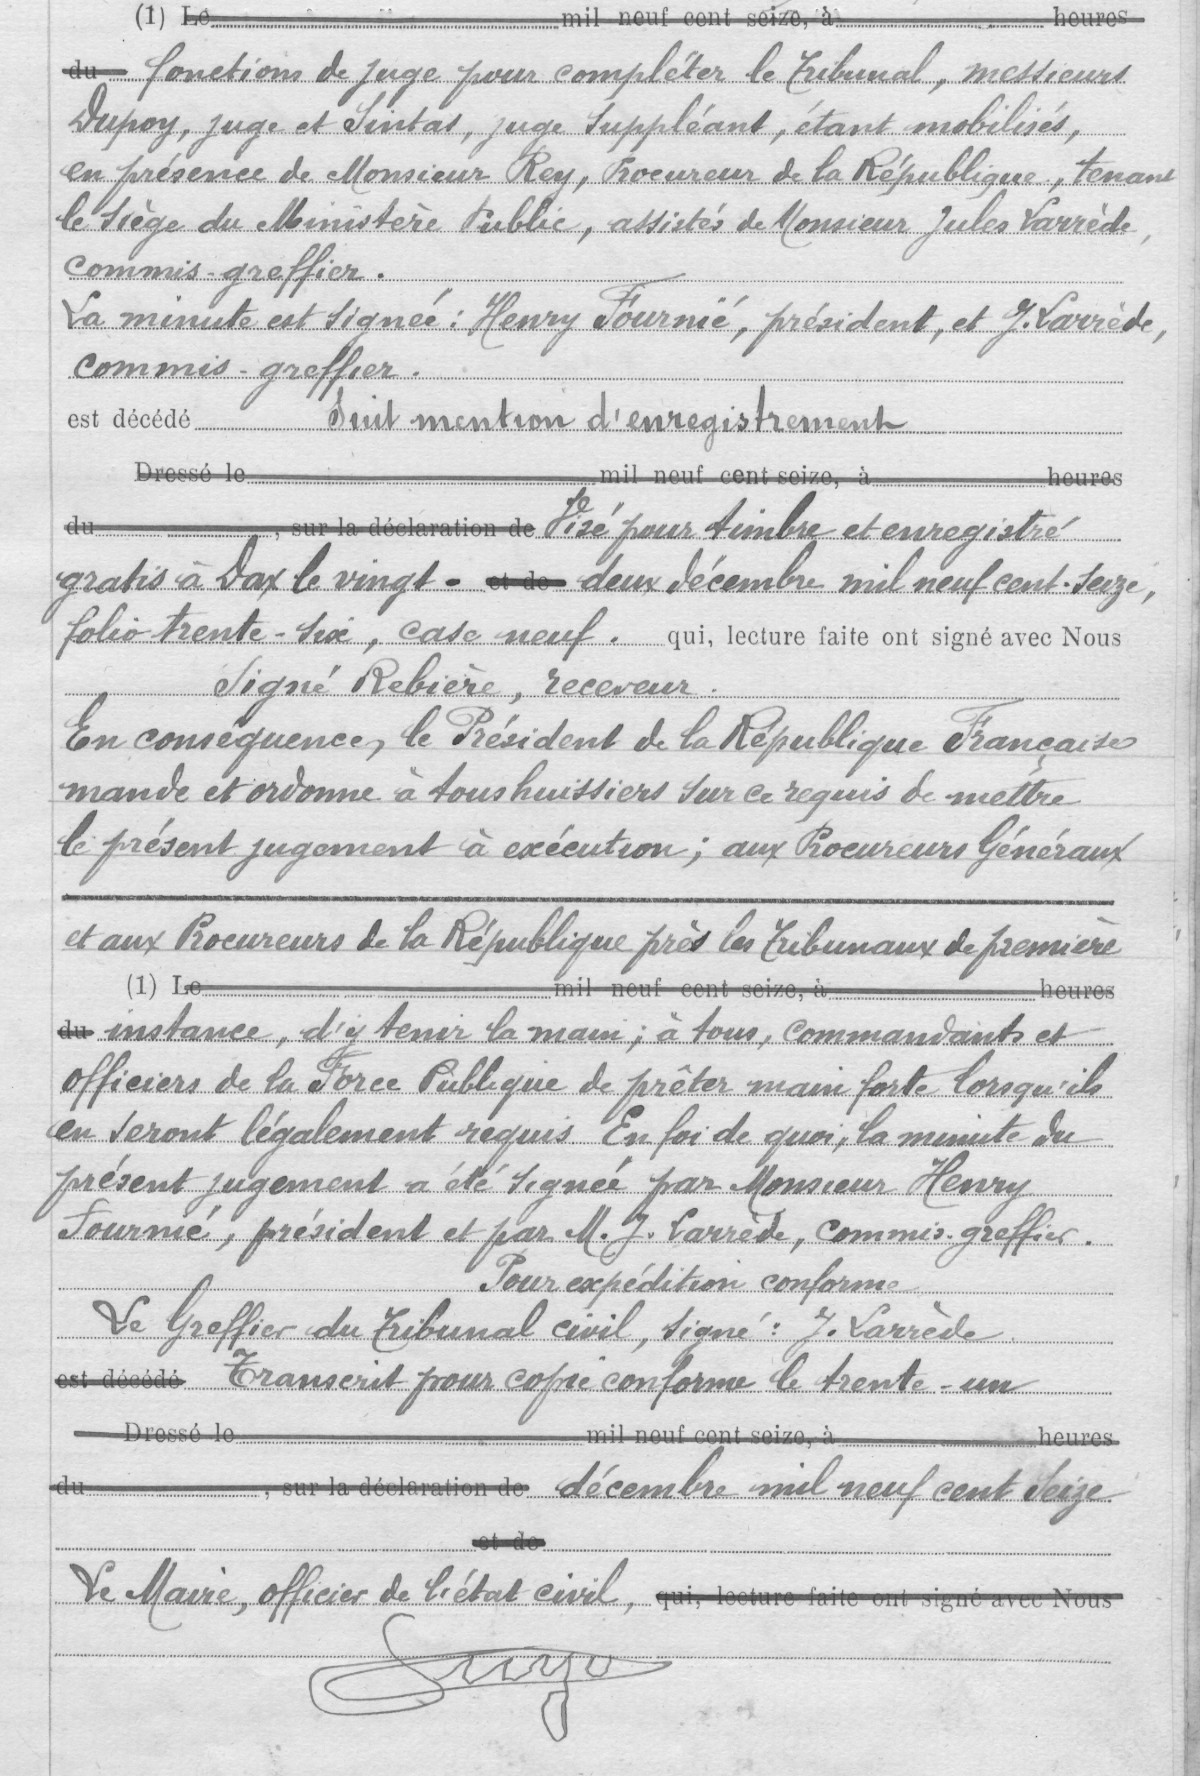 (1) Le mil neuf cent seize, à heures
du fonctions de juge pour compléter le Tribunal, messieurs
Dupoy, juge et Sintas, juge suppléant, étant mobilisés,
en présence de Monsieur Rey, Procureur de la République, tenant
le siège du Ministère Public, assistés de Monsieur Jules Larrède,
commis-greffier.
La minute est signée: Henry Fournié, président, et J. Larrède,
commis-greffier.
est décédé Suit mention d'enregistrement
Dressé le mil neuf cent seize, à heures
du , sur la déclaration de Visé pour timbre et enregistré
gratis à Dax le vingt- et de deux décembre mil neuf cent-seize,
folio trente-six, case neuf. qui, lecture faite ont signé avec Nous
Signé Rebière, receveur.
En conséquence, le Président de la République Française
mande et ordonne à tous huissiers sur ce requis de mettre
le présent jugement à exécution; aux Procureurs Généraux
et aux Procureurs de la République près les Tribunaux de première
(1) Le mil neuf cent seize, à heures
du instance, d'y tenir la main; à tous, commandants et
officiers de la Force Publique de prêter main forte lorsqu'ils
en seront légalement requis En foi de quoi, la minute du
présent jugement a été signée par Monsieur Henry
Fournié, président et par M. J. Larrède, commis-greffier.
Pour expédition conforme
Le Greffier du Tribunal civil, signé: J. Larrède
est décédé Transcrit pour copie conforme le trente-un
Dressé le mil neuf cent seize, à heures
du , sur la déclaration de décembre mil neuf cent seize
et de
Le Maire, officier de l'état civil, qui, lecture faite ont signé avec Nous